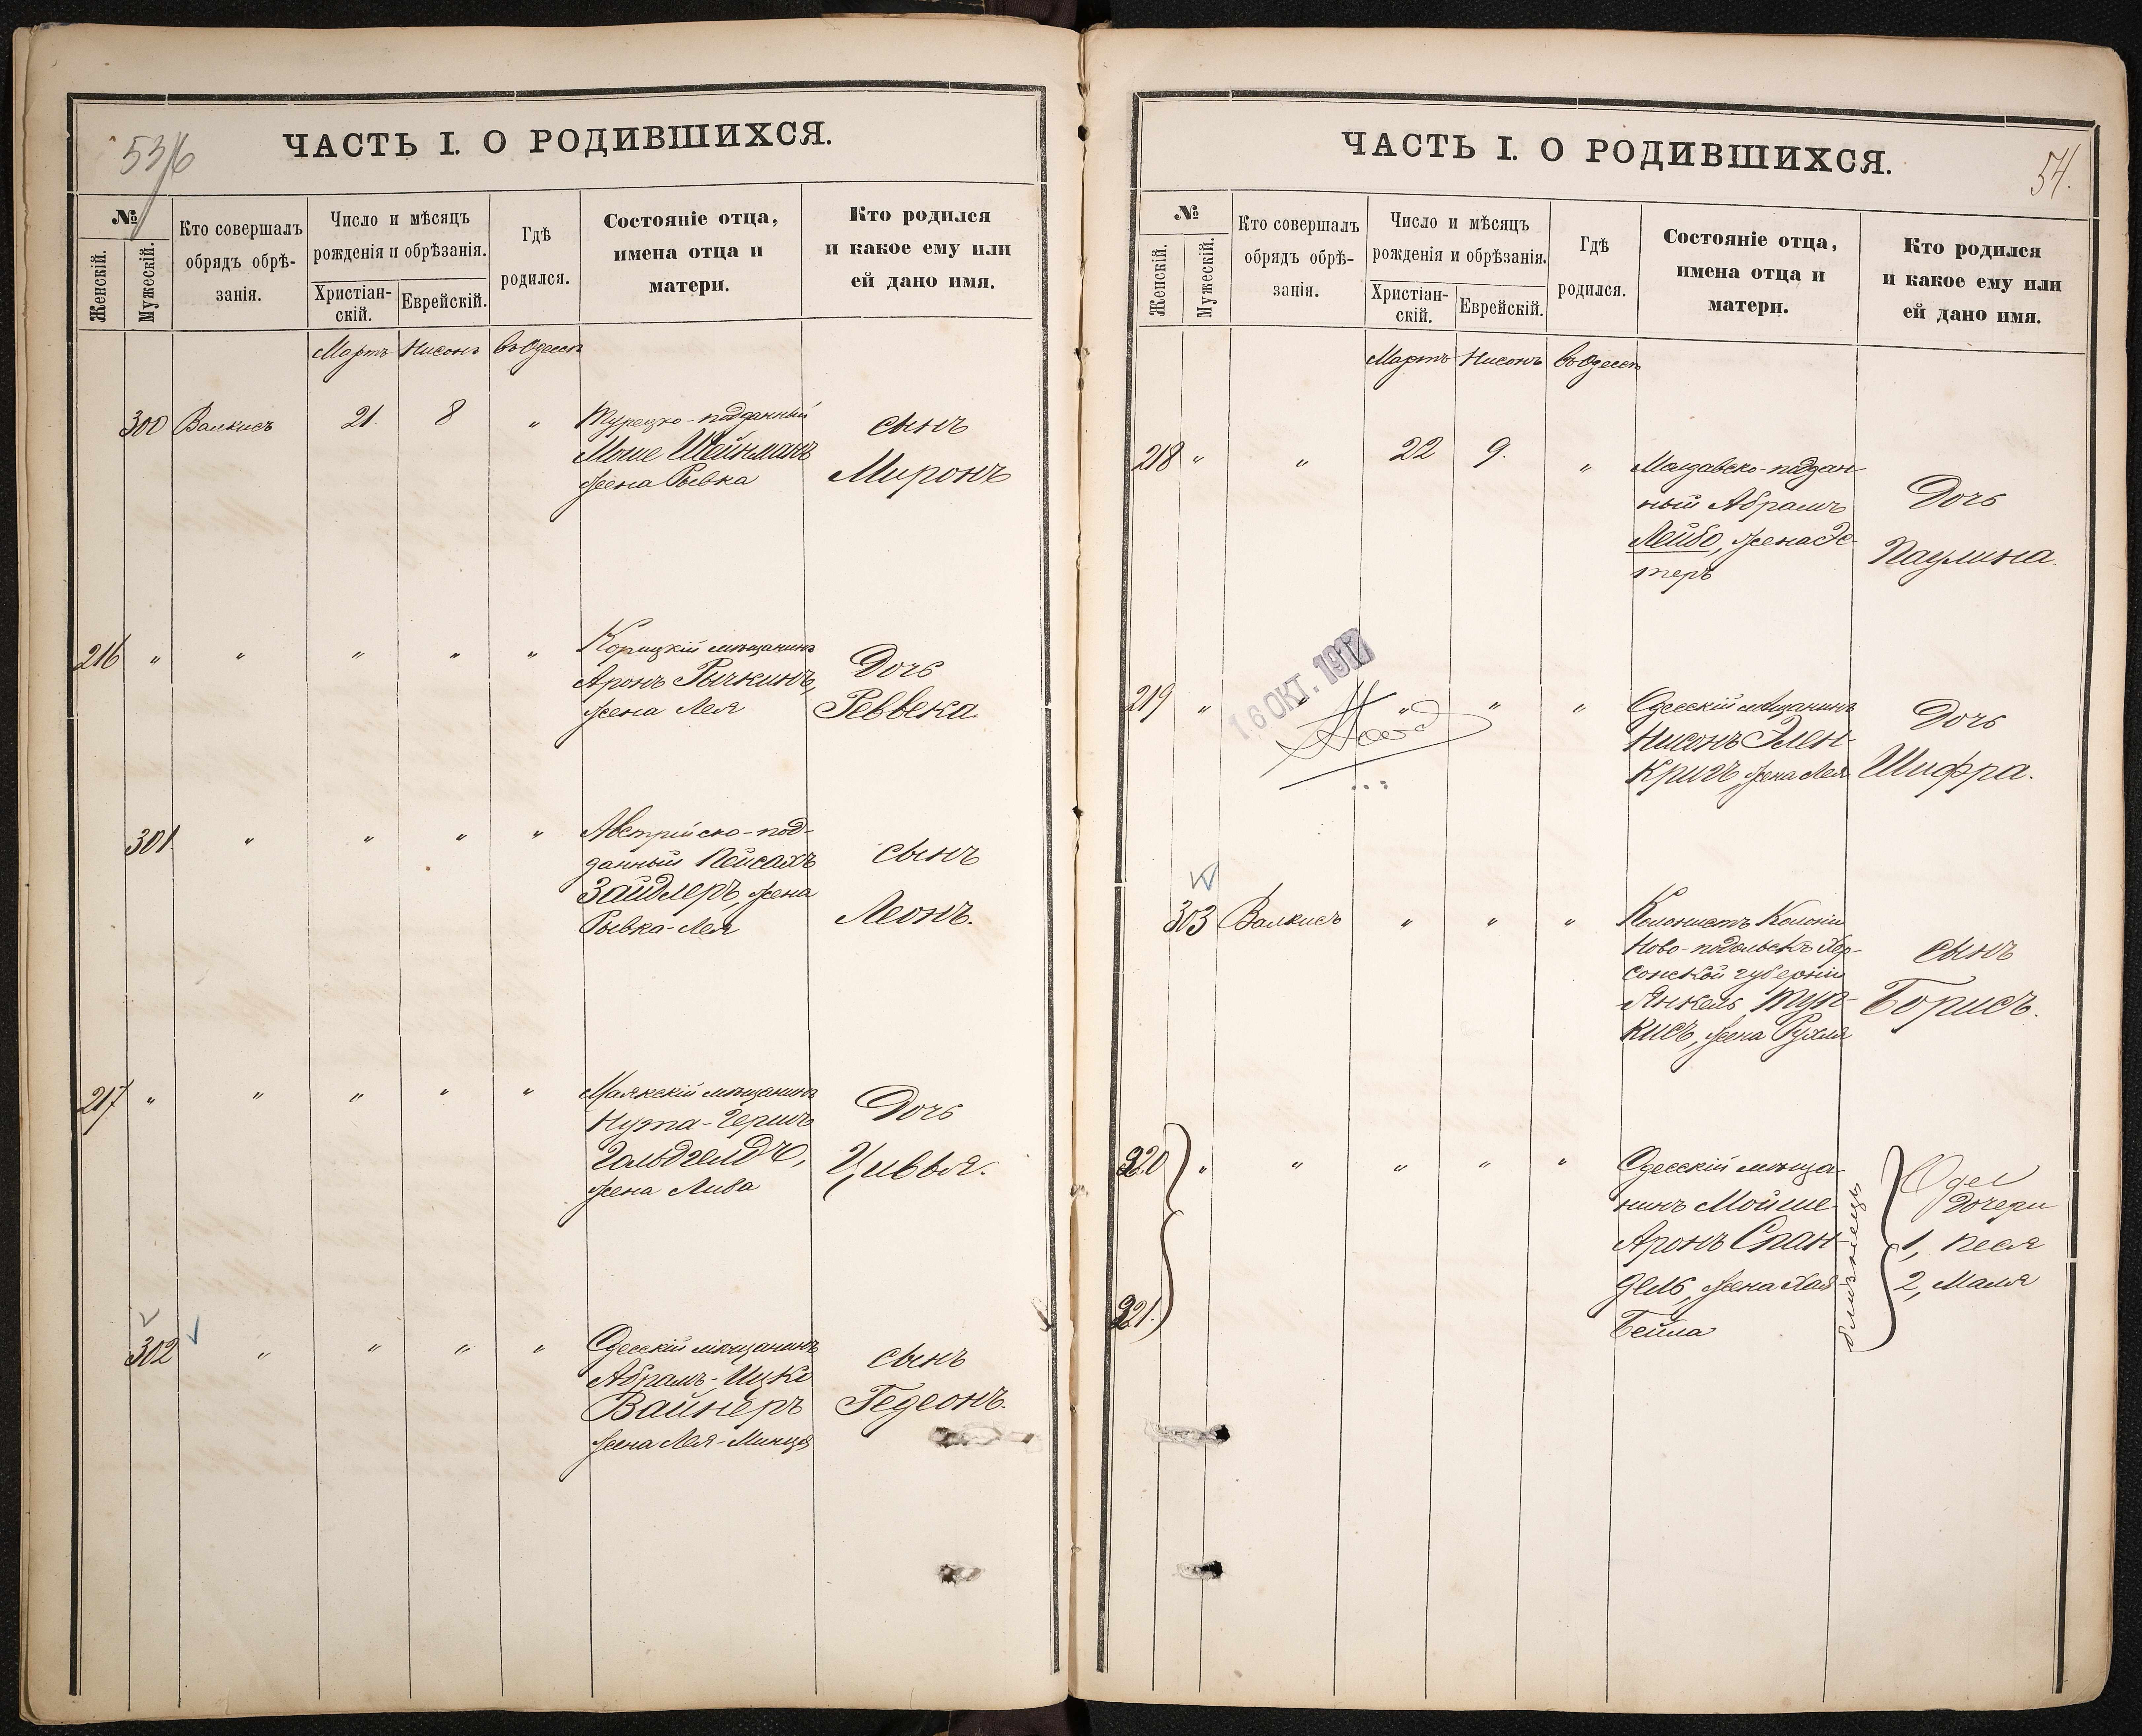 53/6
ЧАСТЬ I. О РОДИВШИХСЯ.
№
Женскій.
Мужескій.
Кто совершалъ
обрядъ обрѣ-
занія.
Число и мѣсяцъ
рожденія и обрѣзанія.
Христіан-
скій.
Еврейскій.
Гдѣ
родился.
Состояніе отца,
имена отца и
матери.
Кто родился
и какое ему или
ей дано имя.
Мартъ Нисонъ въ Одессѣ
300 Валкисъ 21 8 " Турецко-подданный
Моше Шейнманъ
жена Рывка
сынъ
Миронъ
216 " " " " " Корицкій мѣщанинъ
Аронъ Рычкинъ,
жена Лея
Дочь
Реввека.
301 " " " " Австрійско-под-
данный Пейсахъ
Зайдлеръ, жена
Рывка-Лея
сынъ
Леонъ.
217 " " " " " Маякскій мѣщанинъ
Нута-Гершъ
Гольдгелдъ,
жена Либа
Дочь
Цивья.
302 " " " " Одесскій мѣщанинъ
Абрамъ-Ицко
Вайнеръ
жена Лея-Минця
сынъ
Гедеонъ.
54.
ЧАСТЬ I. О РОДИВШИХСЯ.
№
Женскій.
Мужескій.
Кто совершалъ
обрядъ обрѣ-
занія.
Число и мѣсяцъ
рожденія и обрѣзанія.
Христіан-
скій.
Еврейскій.
Гдѣ
родился.
Состояніе отца,
имена отца и
матери.
Кто родился
и какое ему или
ей дано имя.
Мартъ Нисонъ въ Одессѣ
218 " " 22 9. " Молдавско-поддан-
ный Абрамъ
Лейбо, жена Эс-
теръ
Дочь
Паулина.
16 ОКТ. 1917
219 " " " " " Одесскій мѣщанинъ
Нисонъ Элен-
кригъ, жена Лея
Дочь
Шифра.
303 Валкисъ " " " Колонистъ Колоніи
Ново-подольскъ Хер-
сонской губерніи
Янкель Тур-
кисъ, жена Рухля
сынъ
Борисъ.
220 " " " " " Одесскій мѣща-
нинъ Мойше-
Аронъ Спан-
дель, жена Хая
Бейла
221.
близнецы
Дочери
1, Песя
2, Маля